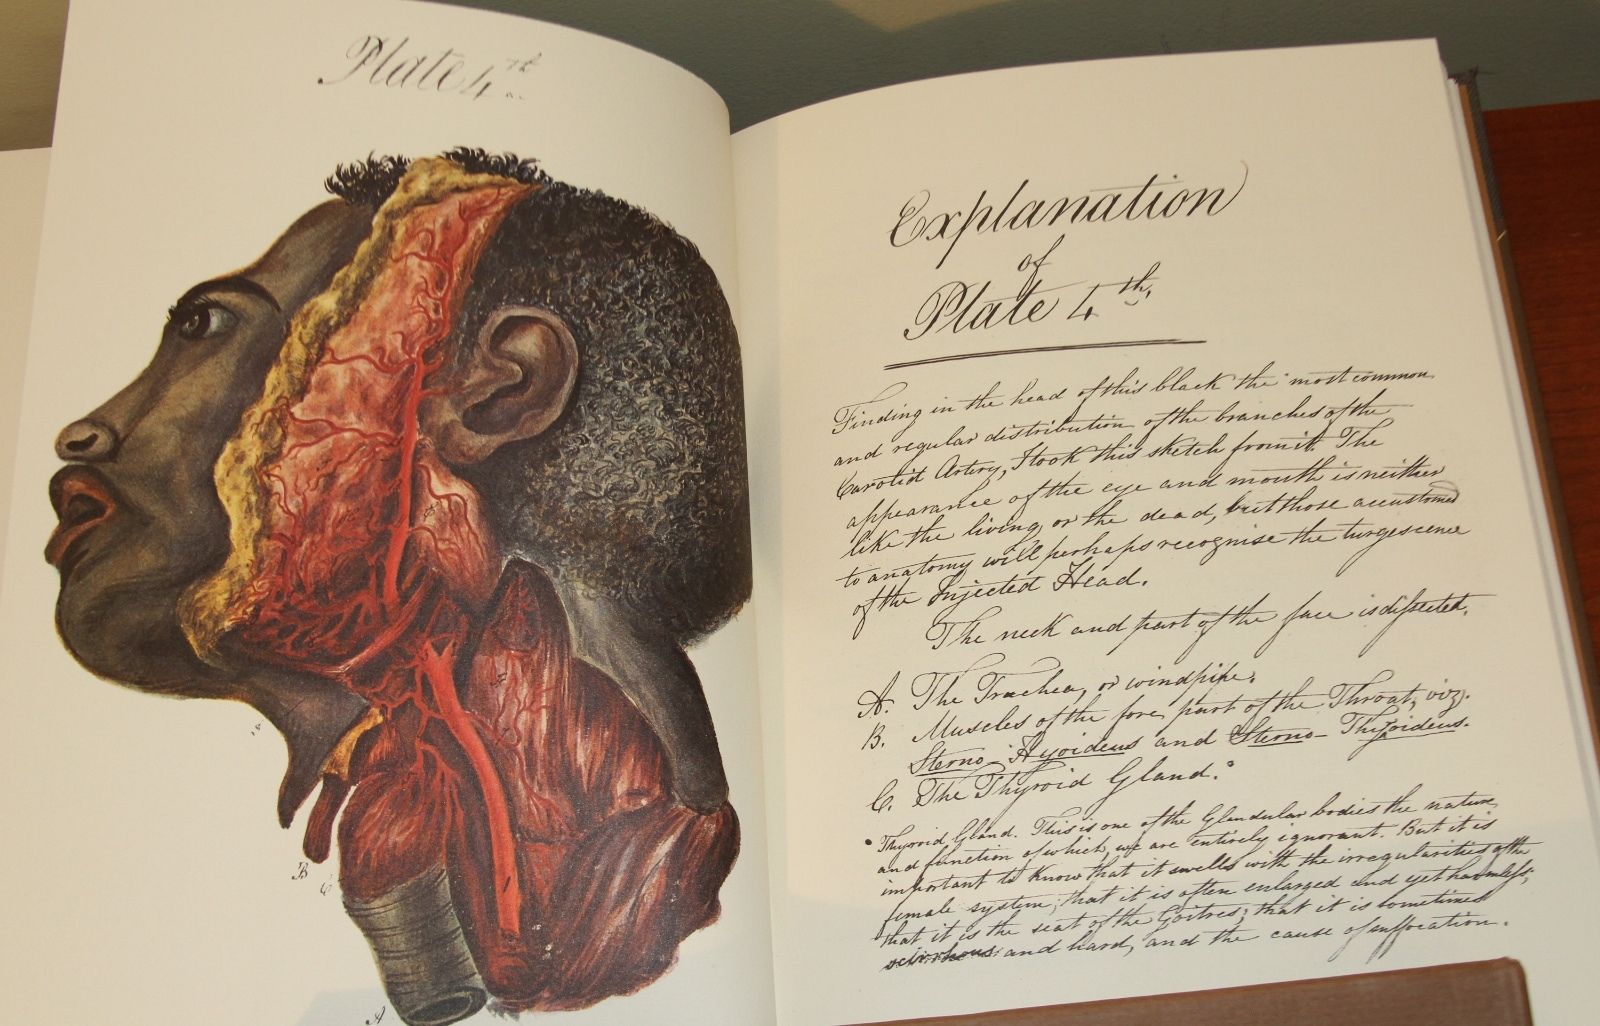 Plate 4th
Explanation
of
Plate 4th,
Finding in the head of this black the most common
and regular distribution of the branches of the
Carotid Artery, I took this sketch from it. The
appearance of the eye and mouth is neither
like the living, or the dead, but those accustomed
to anatomy will perhaps recognise the turgescence
of the Injected Head.
The neck and part of the face is dissected.
A. The Trachea, or windpipe.
B. Muscles of the fore part of the Throat, viz.
Sterno-Hyoideus and Sterno-Thyroideus.
C. The Thyroid Gland.*
* Thyroid Gland. This is one of the Glandular bodies the nature
and function of which, we are entirely ignorant. But it is
important to know that it swells with the irregularities of the
female system; that it is often enlarged and yet harmless;
that it is the seat of the Goitres; that it is sometimes
scirrhous and hard, and the cause of suffocation.
B
C
A